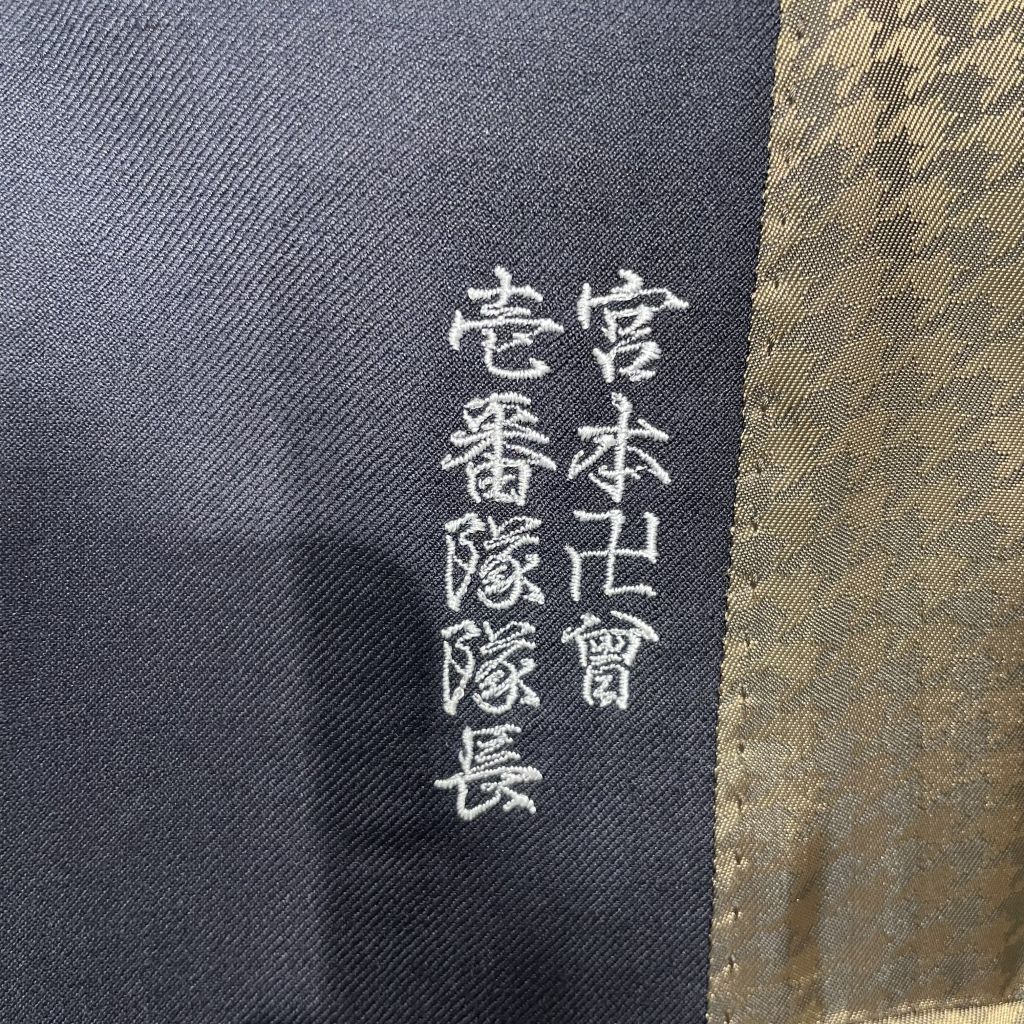 宮本卍會
壱番隊隊長